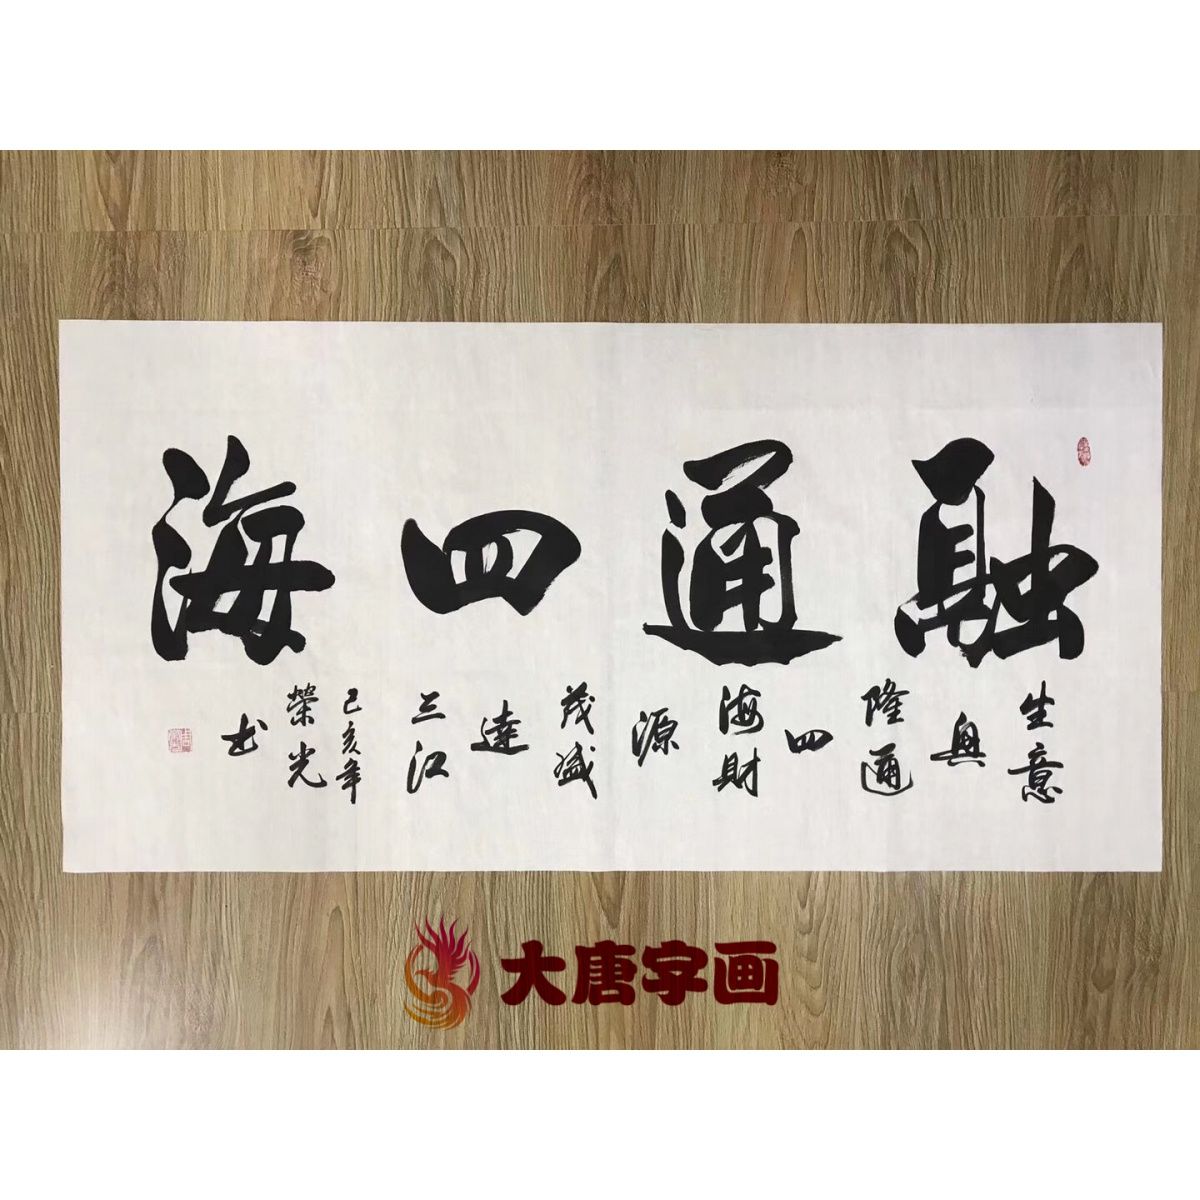 融通四海
生意
興
隆通
四
海財
源
茂盛
達
三江
己亥年
榮光
书
大唐字画